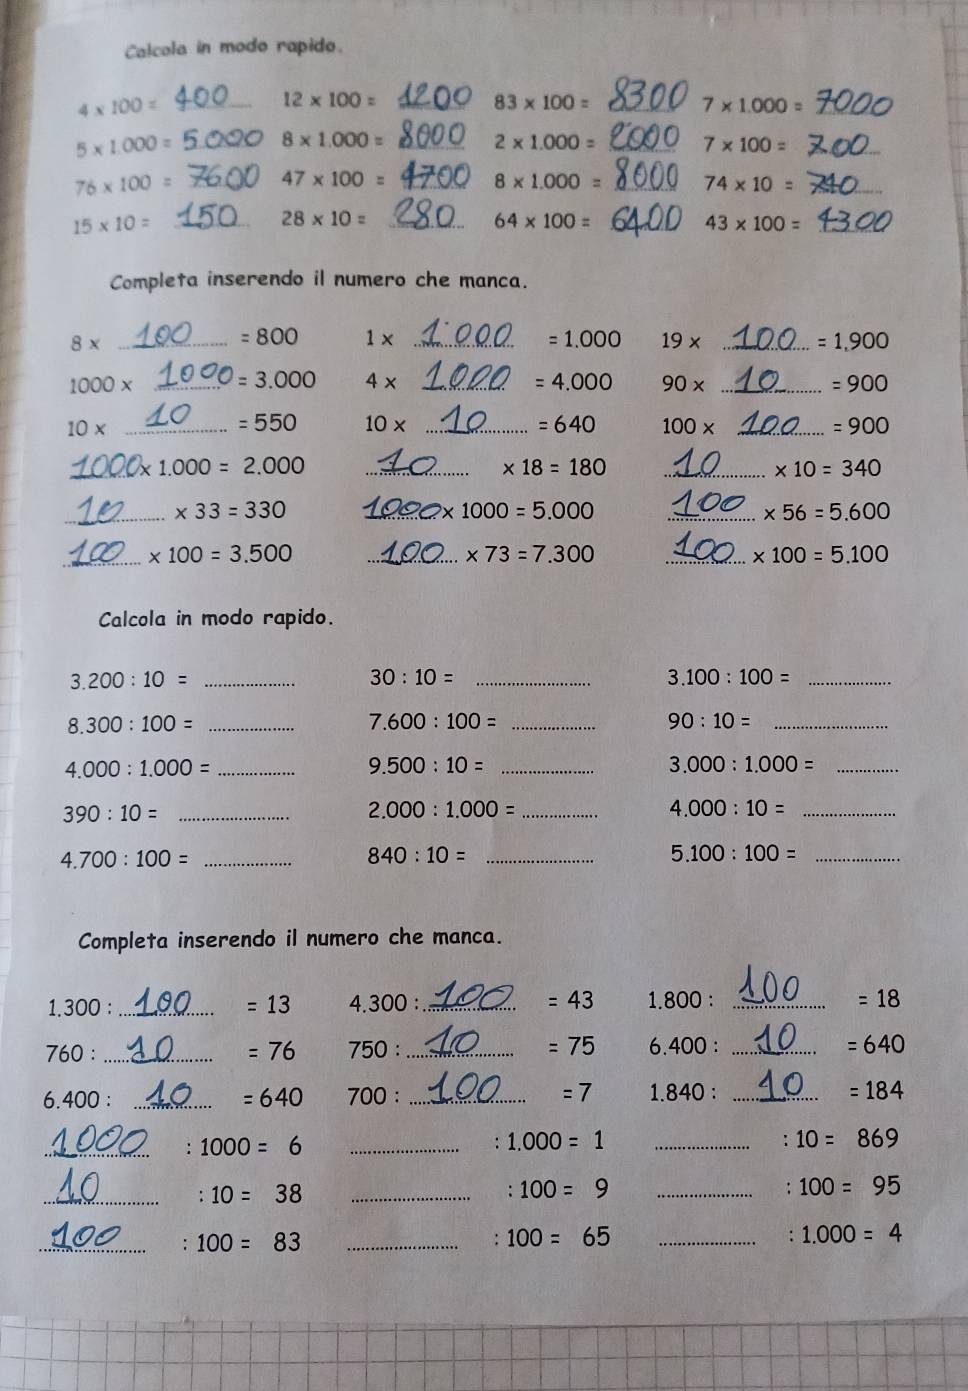 Calcola in modo rapido.
4 x 100 = 400 12 x 100 = 1200 83 x 100 = 8300 7 x 1.000 = 7000
5 x 1.000 = 5.000 8 x 1.000 = 8000 2 x 1.000 = 2000 7 x 100 = 700
76 x 100 = 7600 47 x 100 = 4700 8 x 1.000 = 8000 74 x 10 = 740
15 x 10 = 150 28 x 10 = 280 64 x 100 = 6400 43 x 100 = 4300
Completa inserendo il numero che manca.
8 x 100 = 800 1 x 1.000 = 1.000 19 x 100 = 1.900
1000 x 1000 = 3.000 4 x 1.000 = 4.000 90 x 10 = 900
10 x 10 = 550 10 x 10 = 640 100 x 100 = 900
1000 x 1.000 = 2.000 10 x 18 = 180 10 x 10 = 340
10 x 33 = 330 1000 x 1000 = 5.000 100 x 56 = 5.600
100 x 100 = 3.500 100 x 73 = 7.300 100 x 100 = 5.100
Calcola in modo rapido.
3.200 : 10 = 30 : 10 = 3.100 : 100 =
8.300 : 100 = 7.600 : 100 = 90 : 10 =
4.000 : 1.000 = 9.500 : 10 = 3.000 : 1.000 =
390 : 10 = 2.000 : 1.000 = 4.000 : 10 =
4.700 : 100 = 840 : 10 = 5.100 : 100 =
Completa inserendo il numero che manca.
1.300 : 100 = 13 4.300 : 100 = 43 1.800 : 100 = 18
760 : 10 = 76 750 : 10 = 75 6.400 : 10 = 640
6.400 : 10 = 640 700 : 100 = 7 1.840 : 10 = 184
1000 : 1000 = 6 : 1.000 = 1 : 10 = 869
10 : 10 = 38 : 100 = 9 : 100 = 95
100 : 100 = 83 : 100 = 65 : 1.000 = 4